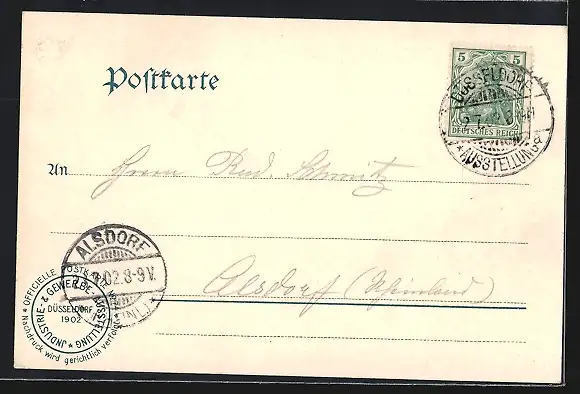 Postkarte
5 5
DEUTSCHES REICH
DÜSSELDORF
AUSSTELLUNG
An Herrn Rud. Schmitz
Alsdorf (Rheinland)
ALSDORF
02.8-9V.
OFFICIELLE POSTKARTE
INDUSTRIE- & GEWERBE-AUSSTELLUNG
DÜSSELDORF
1902
Nachdruck wird gerichtlich verfolgt